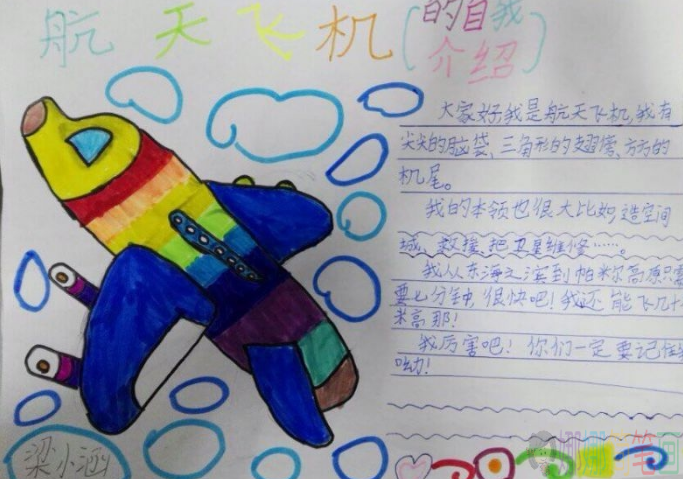 航天飞机(的自我
介绍)
大家好我是航天飞机,我有
尖尖的脑袋,三角形的翅膀,方方的
机尾。
我的本领也很大比如造空间
城、救援、把卫星维修……。
我从东海之滨到帕米尔高原只需
要七分钟,很快吧!我还能飞几十
米高那!
我厉害吧!你们一定要记住我
呦!
梁小涵
笔画